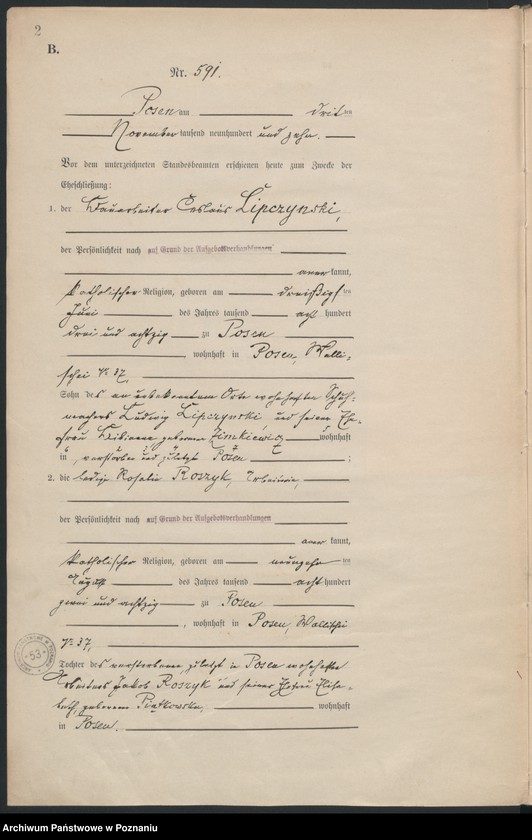 2
B.
Nr. 591.
Posen am dritten
November tausend neunhundert und zehn.
Vor dem unterzeichneten Standesbeamten erschienen heute zum Zwecke der
Eheschließung:
1. der Bauarbeiter Ceslaus Lipczynski,
der Persönlichkeit nach auf Grund der Aufgebotsverhandlungen
anerkannt,
katholischer Religion, geboren am dreißigsten
Juni des Jahres tausend acht hundert
drei und achtzig zu Posen
, wohnhaft in Posen, Walli-
schei № 37,
Sohn des an unbekanntem Orte wohnhaften Schuh-
machers Ludwig Lipczynski und seiner Ehe-
frau geborenen Zimkiewicz wohnhaft
in, verstorben und zuletzt Posen ;
2. die ledige Rosalie Roszyk, Arbeiterin,
der Persönlichkeit nach auf Grund der Aufgebotsverhandlungen
anerkannt,
katholischer Religion, geboren am neunzehnten
August des Jahres tausend acht hundert
zwei und achtzig zu Posen
, wohnhaft in Posen, Wallischei
№ 37,
Tochter des verstorbenen, zuletzt in Posen wohnhaften
Arbeiters Jakob Roszyk und seiner Ehefrau Elisa-
beth, geborenen Piątkowska, wohnhaft
in Posen.
53
Archiwum Państwowe w Poznaniu